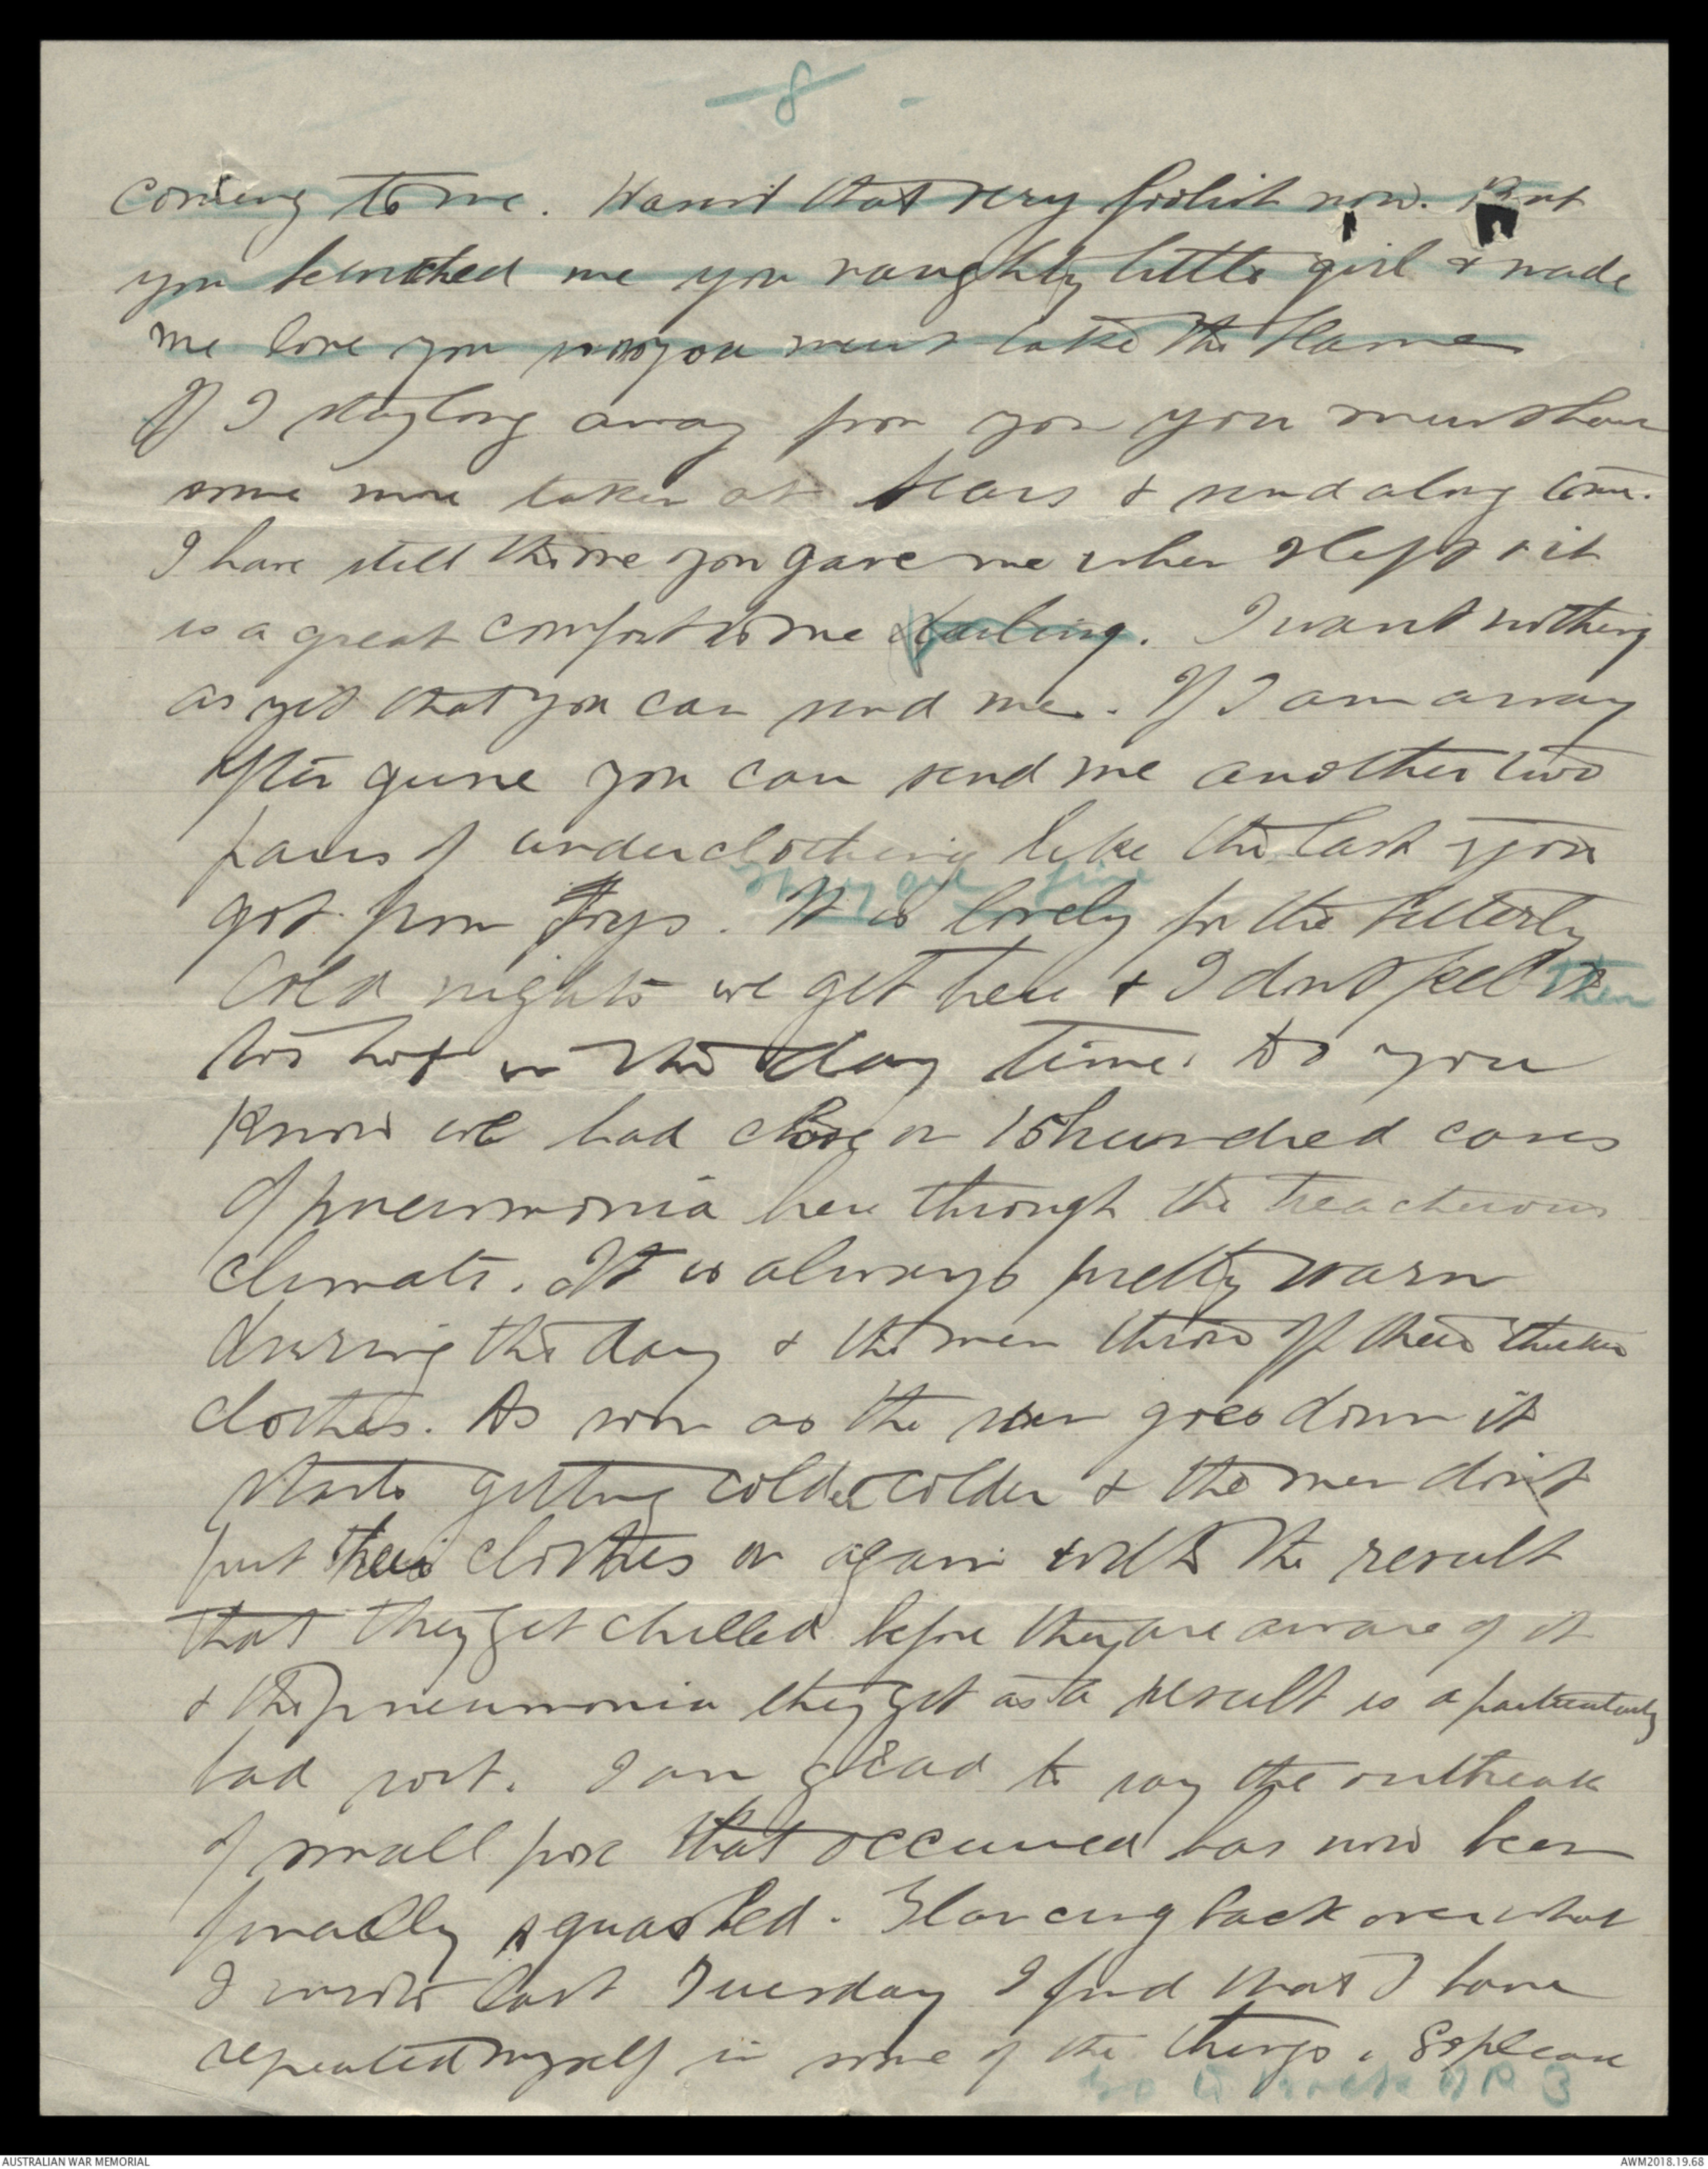 8
coming to me. Wasn't that very foolish now. But
you bewitched me you naughty little girl & made
me love you now you must take the blame
If I stay long away from you you must have
some more taken at & send along one.
I have still the one you gave me when I left & it
is a great comfort to me darling. I want nothing
as yet that you can send me. If I am away
after June you can send me another two
pairs of underclothing like the last you
They are fine
got from Foys. It is lovely for the bitterly
cold nights we get here & I dont feel it them
too hot in the day time. Do you
know we had close on 15 hundred cases
of pneumonia here through the treacherous
climate. It is always pretty warm
during the day & the men throw off their thicker
clothes. As soon as the sun goes down it
starts getting colder colder & the men don't
put their clothes on again with the result
that they get chilled before they are aware of it
& the pneumonia they get as a result is a particularly
bad sort. I am glad to say the outbreak
of small pox that occurred has now been
finally squashed. Glancing back over what
I wrote last Tuesday I find that I have
repeated myself in some of the things. So please
Go to back of P 3
AUSTRALIAN WAR MEMORIAL
AWM2018.19.68